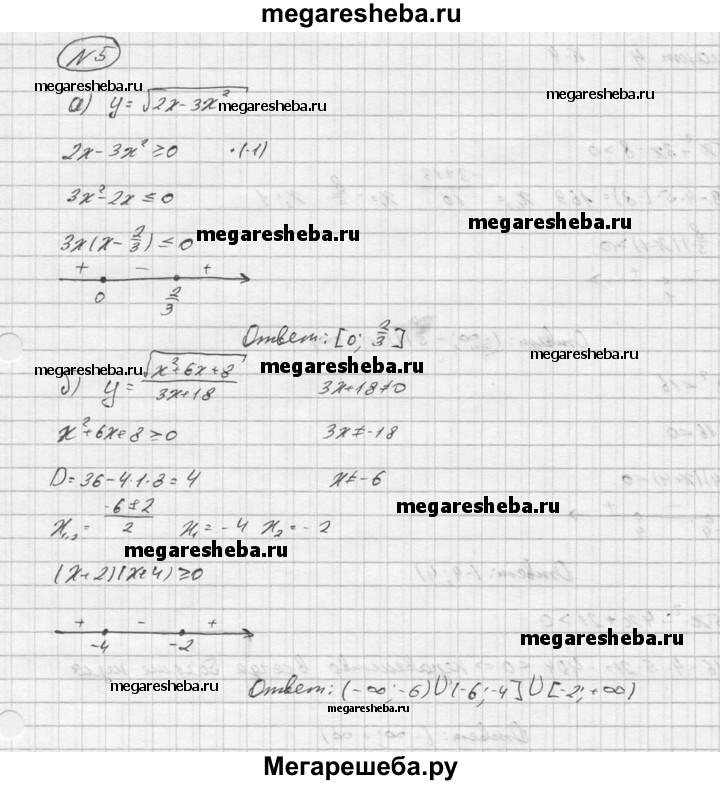 megaresheba.ru
N 5
megaresheba.ru
megaresheba.ru
а) y = √(2x - 3x²)
megaresheba.ru
2x - 3x² ≥ 0 ·(-1)
3x² - 2x ≤ 0
megaresheba.ru
3x(x - 2/3) ≤ 0
megaresheba.ru
+ - +
0 2/3
Ответ: [0; 2/3]
megaresheba.ru
megaresheba.ru
megaresheba.ru
б) y = √(x² + 6x + 8)/(3x + 18) 3x + 18 ≠ 0
x² + 6x + 8 ≥ 0 3x ≠ -18
D = 36 - 4·1·8 = 4 x ≠ -6
megaresheba.ru
x₁,₂ = (-6 ± 2)/2 x₁ = -4 x₂ = -2
megaresheba.ru
(x + 2)(x + 4) ≥ 0
+ - +
-4 -2
megaresheba.ru
megaresheba.ru
Ответ: (-∞; -6) ∪ (-6; -4] ∪ [-2; +∞)
megaresheba.ru
Мегарешеба.ру